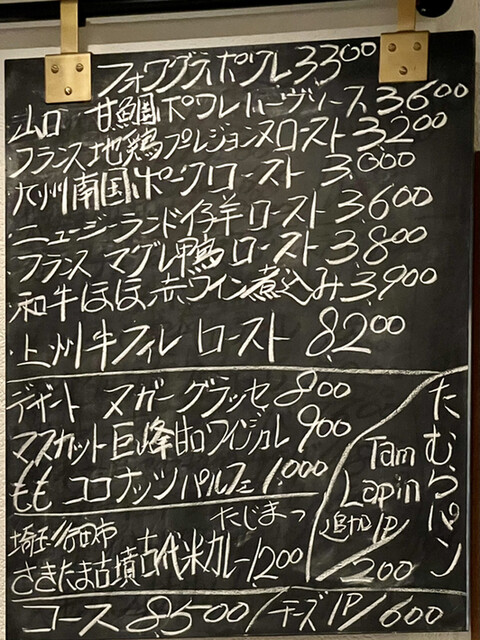 フォワグラポワレ 3300
山口 甘鯛ポワレハーブソース 3,600
フランス地鶏プレジョンヌロースト 3,200
九州南国ポークロースト 3,000
ニュージーランド仔羊ロースト 3600
フランス マグレ鴨ロースト 3800
和牛ほほ赤ワイン煮込み 3,900
上州牛フィレ ロースト 8,200
デザート ヌガーグラッセ 800
マスカット巨峰甘口ワインジュレ 900
もも ココナッツパルフェ 1,000
たむらパン
Tam
Lapin
追加1P
200
たじまっ
埼玉行田市
さきたま古墳古代米カレー 1200
コース 8,500/チーズ1P/600